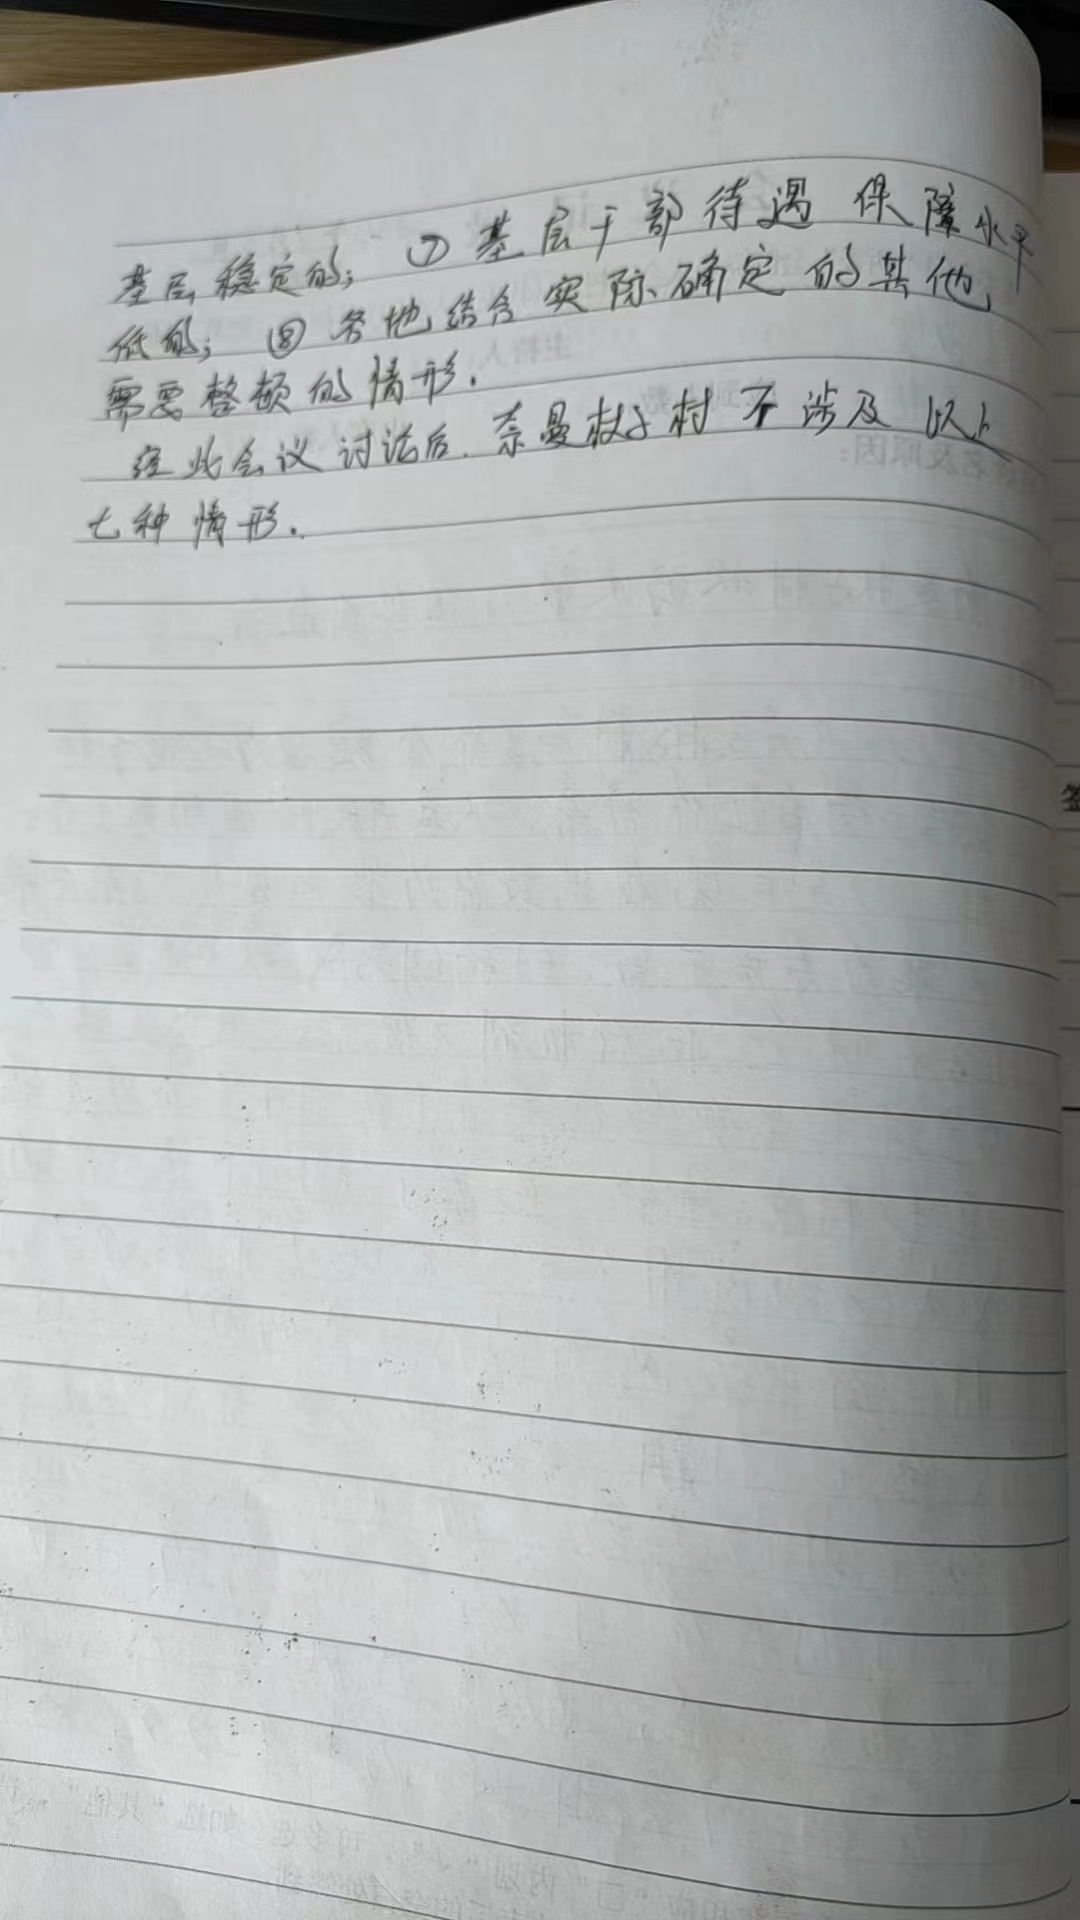 基层稳定的；⑦基层干部待遇保障水平
低的；⑧各地结合实际确定的其他
需要整顿的情形.
经此会议讨论后.奈曼杖子村不涉及以上
七种情形.
主持人
名及原因：
签